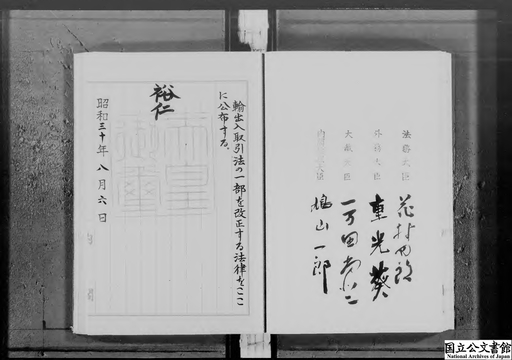 輸出入取引法の一部を改正する法律をここ
に公布する。
裕仁
昭和三十年八月六日
法務大臣 花村四郎
外務大臣 重光葵
大蔵大臣 一万田尚登
鳩山一郎
国立公文書館
National Archives of Japan